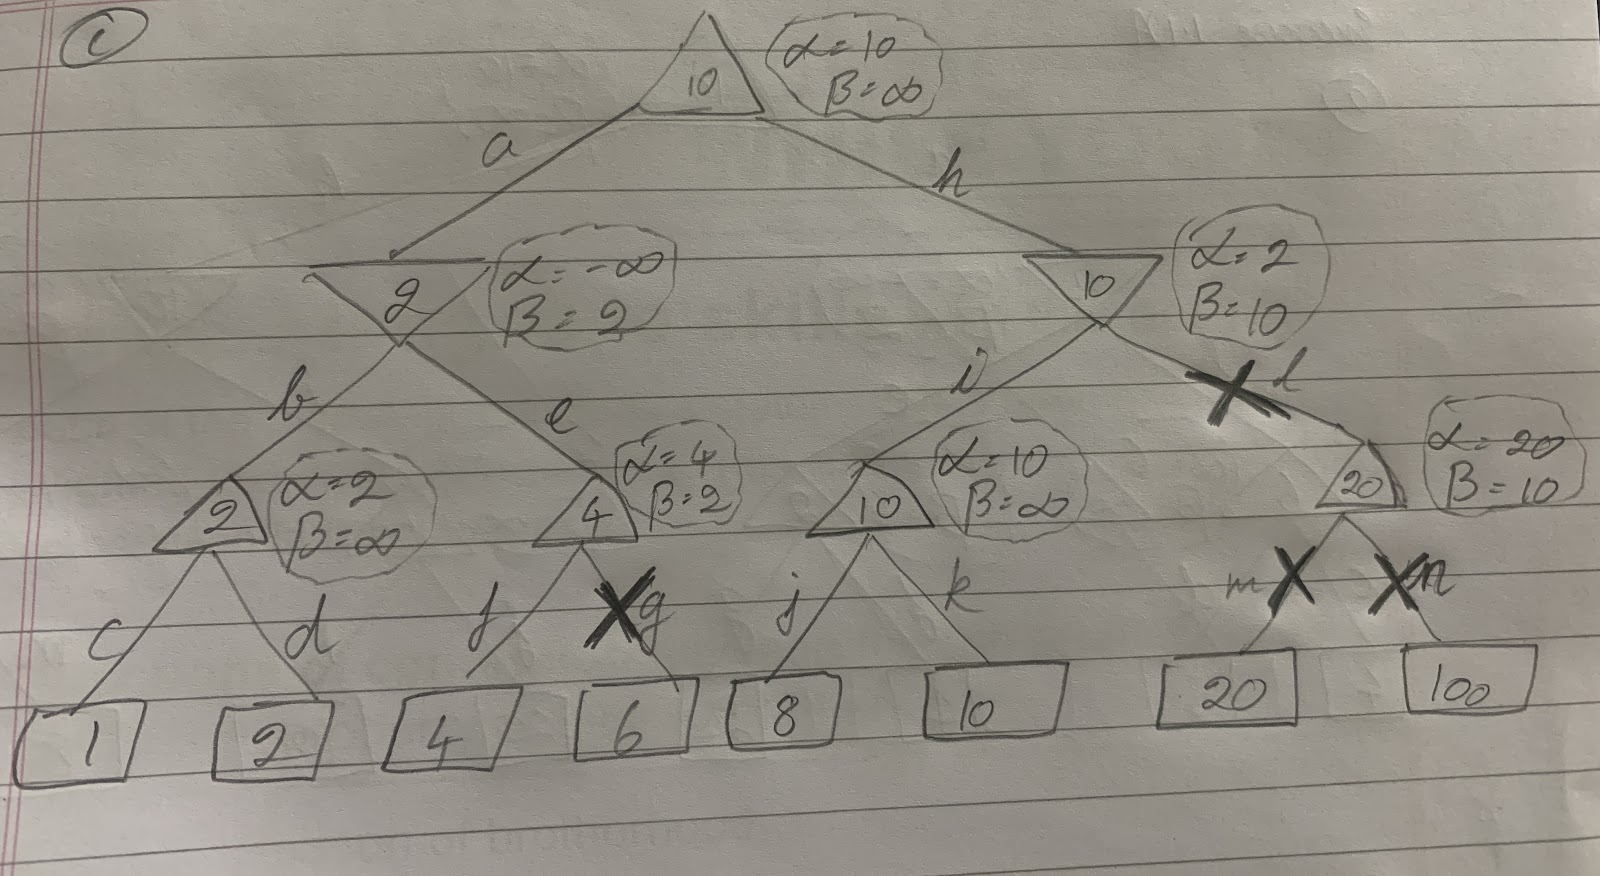 c
10
α=10
β=∞
a
h
2
α=-∞
β=2
10
α=2
β=10
b
e
i
l
2
α=2
β=∞
4
α=4
β=2
10
α=10
β=∞
20
α=20
β=10
c
d
f
g
j
k
m
n
1
2
4
6
8
10
20
100